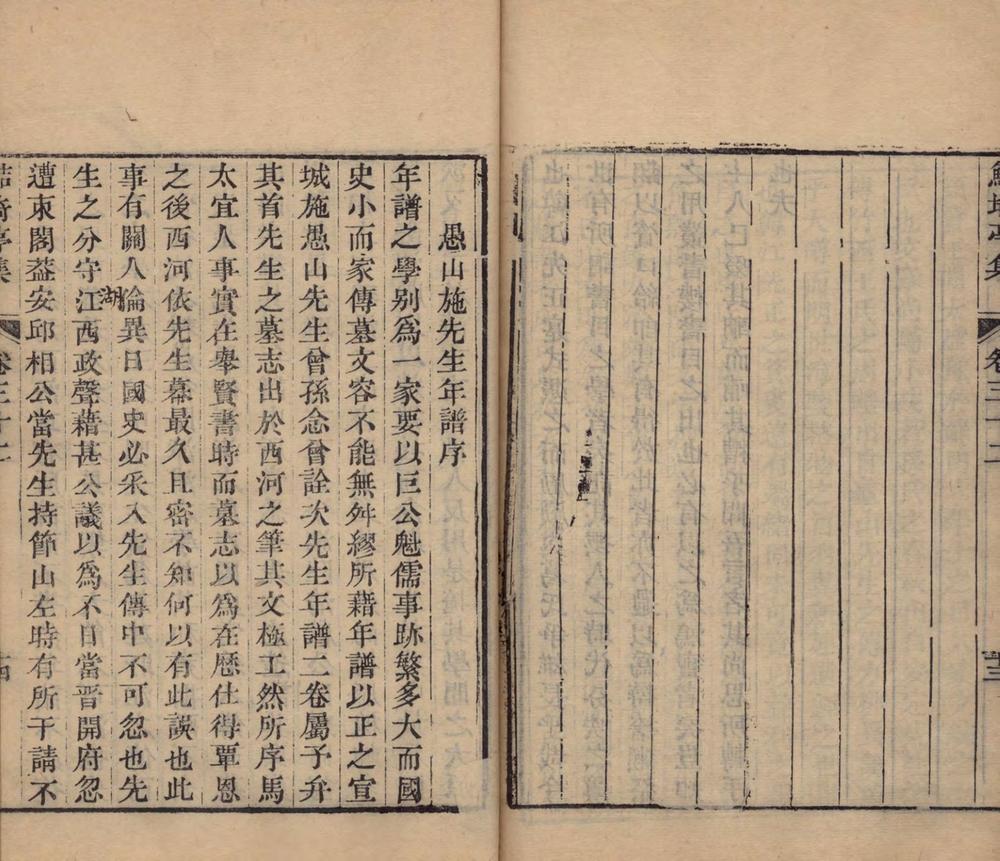 卷三十二
十三
愚山施先生年譜序
年譜之學別爲一家要以巨公魁儒事跡繁多大而國
史小而家傳墓文容不能無舛繆所藉年譜以正之宣
城施愚山先生曾孫念曾詮次先生年譜二卷屬予弁
其首先生之墓志出於西河之筆其文極工然所序馬
太宜人事實在舉賢書時而墓志以爲在歷仕得覃恩
之後西河依先生幕最久且密不知何以有此誤也此
事有關人倫異日國史必采入先生傳中不可忽也先
生之分守江西政聲藉甚公議以爲不日當晋開府忽
湖
遭束閣葢安邱相公當先生持節山左時有所干請不
鮚埼亭集
卷三十二
十四